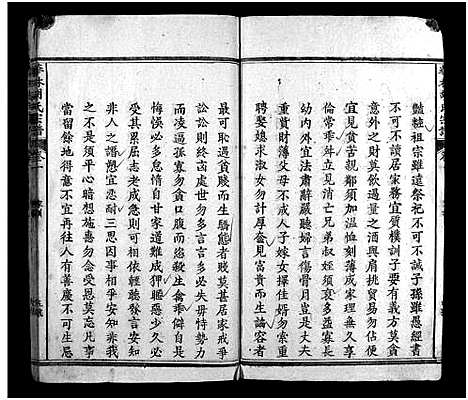 豔粧祖宗雖遠祭祀不可不誠子孫雖愚經書
不可不讀居家務宜質樸訓子要有義方莫貪
意外之財莫飲過量之酒與肩挑貿易勿佔便
宜見貧苦親鄰須加溫恤刻薄成家理無久享
倫常乖舛立見消亡兄弟叔姪須多分潤寡長
幼內外宜法肅辭嚴聽婦言傷骨肉豈是丈夫
重貲財薄父母不成人子嫁女擇佳婿勿索重
聘娶媳求淑女勿計厚奩見富貴而生諂容者
最可恥遇貧賤而生驕態者賤莫甚居家戒爭
訟訟則終凶處世勿多言言多必失毋恃勢力
而凌逼孤寡勿貪口腹而恣殺生禽乖僻自是
悔悞必多怠惰自甘家道難成狎暱惡少久必
受其累屈志老成急則可相依輕聽發言安知
非人之譖愬宜忍耐三思因事相爭安知非我
之不是須平心暗想施惠勿念受恩莫忘凡事
當留餘地得意不宜再往人有善慶不可生忌